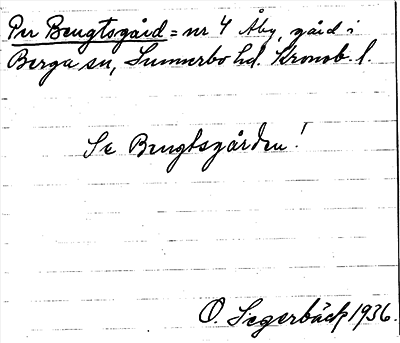 Per Bengtsgård = nr 4 Åby, gård i
Berga sn, Sunnerbo hd. Kronob. l.
Se Bengtsgården!
O. Segerbäck 1936.